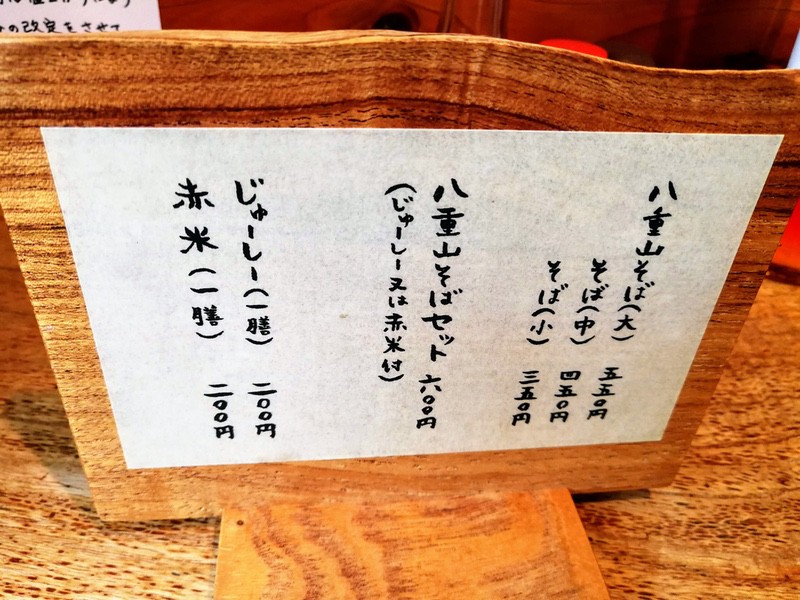 の改定をさせて
八重山そば(大) 五五〇円
そば(中) 四五〇円
そば(小) 三五〇円
八重山そばセット 六〇〇円
(じゅーしー又は赤米付)
じゅーしー(一膳) 二〇〇円
赤米(一膳) 二〇〇円